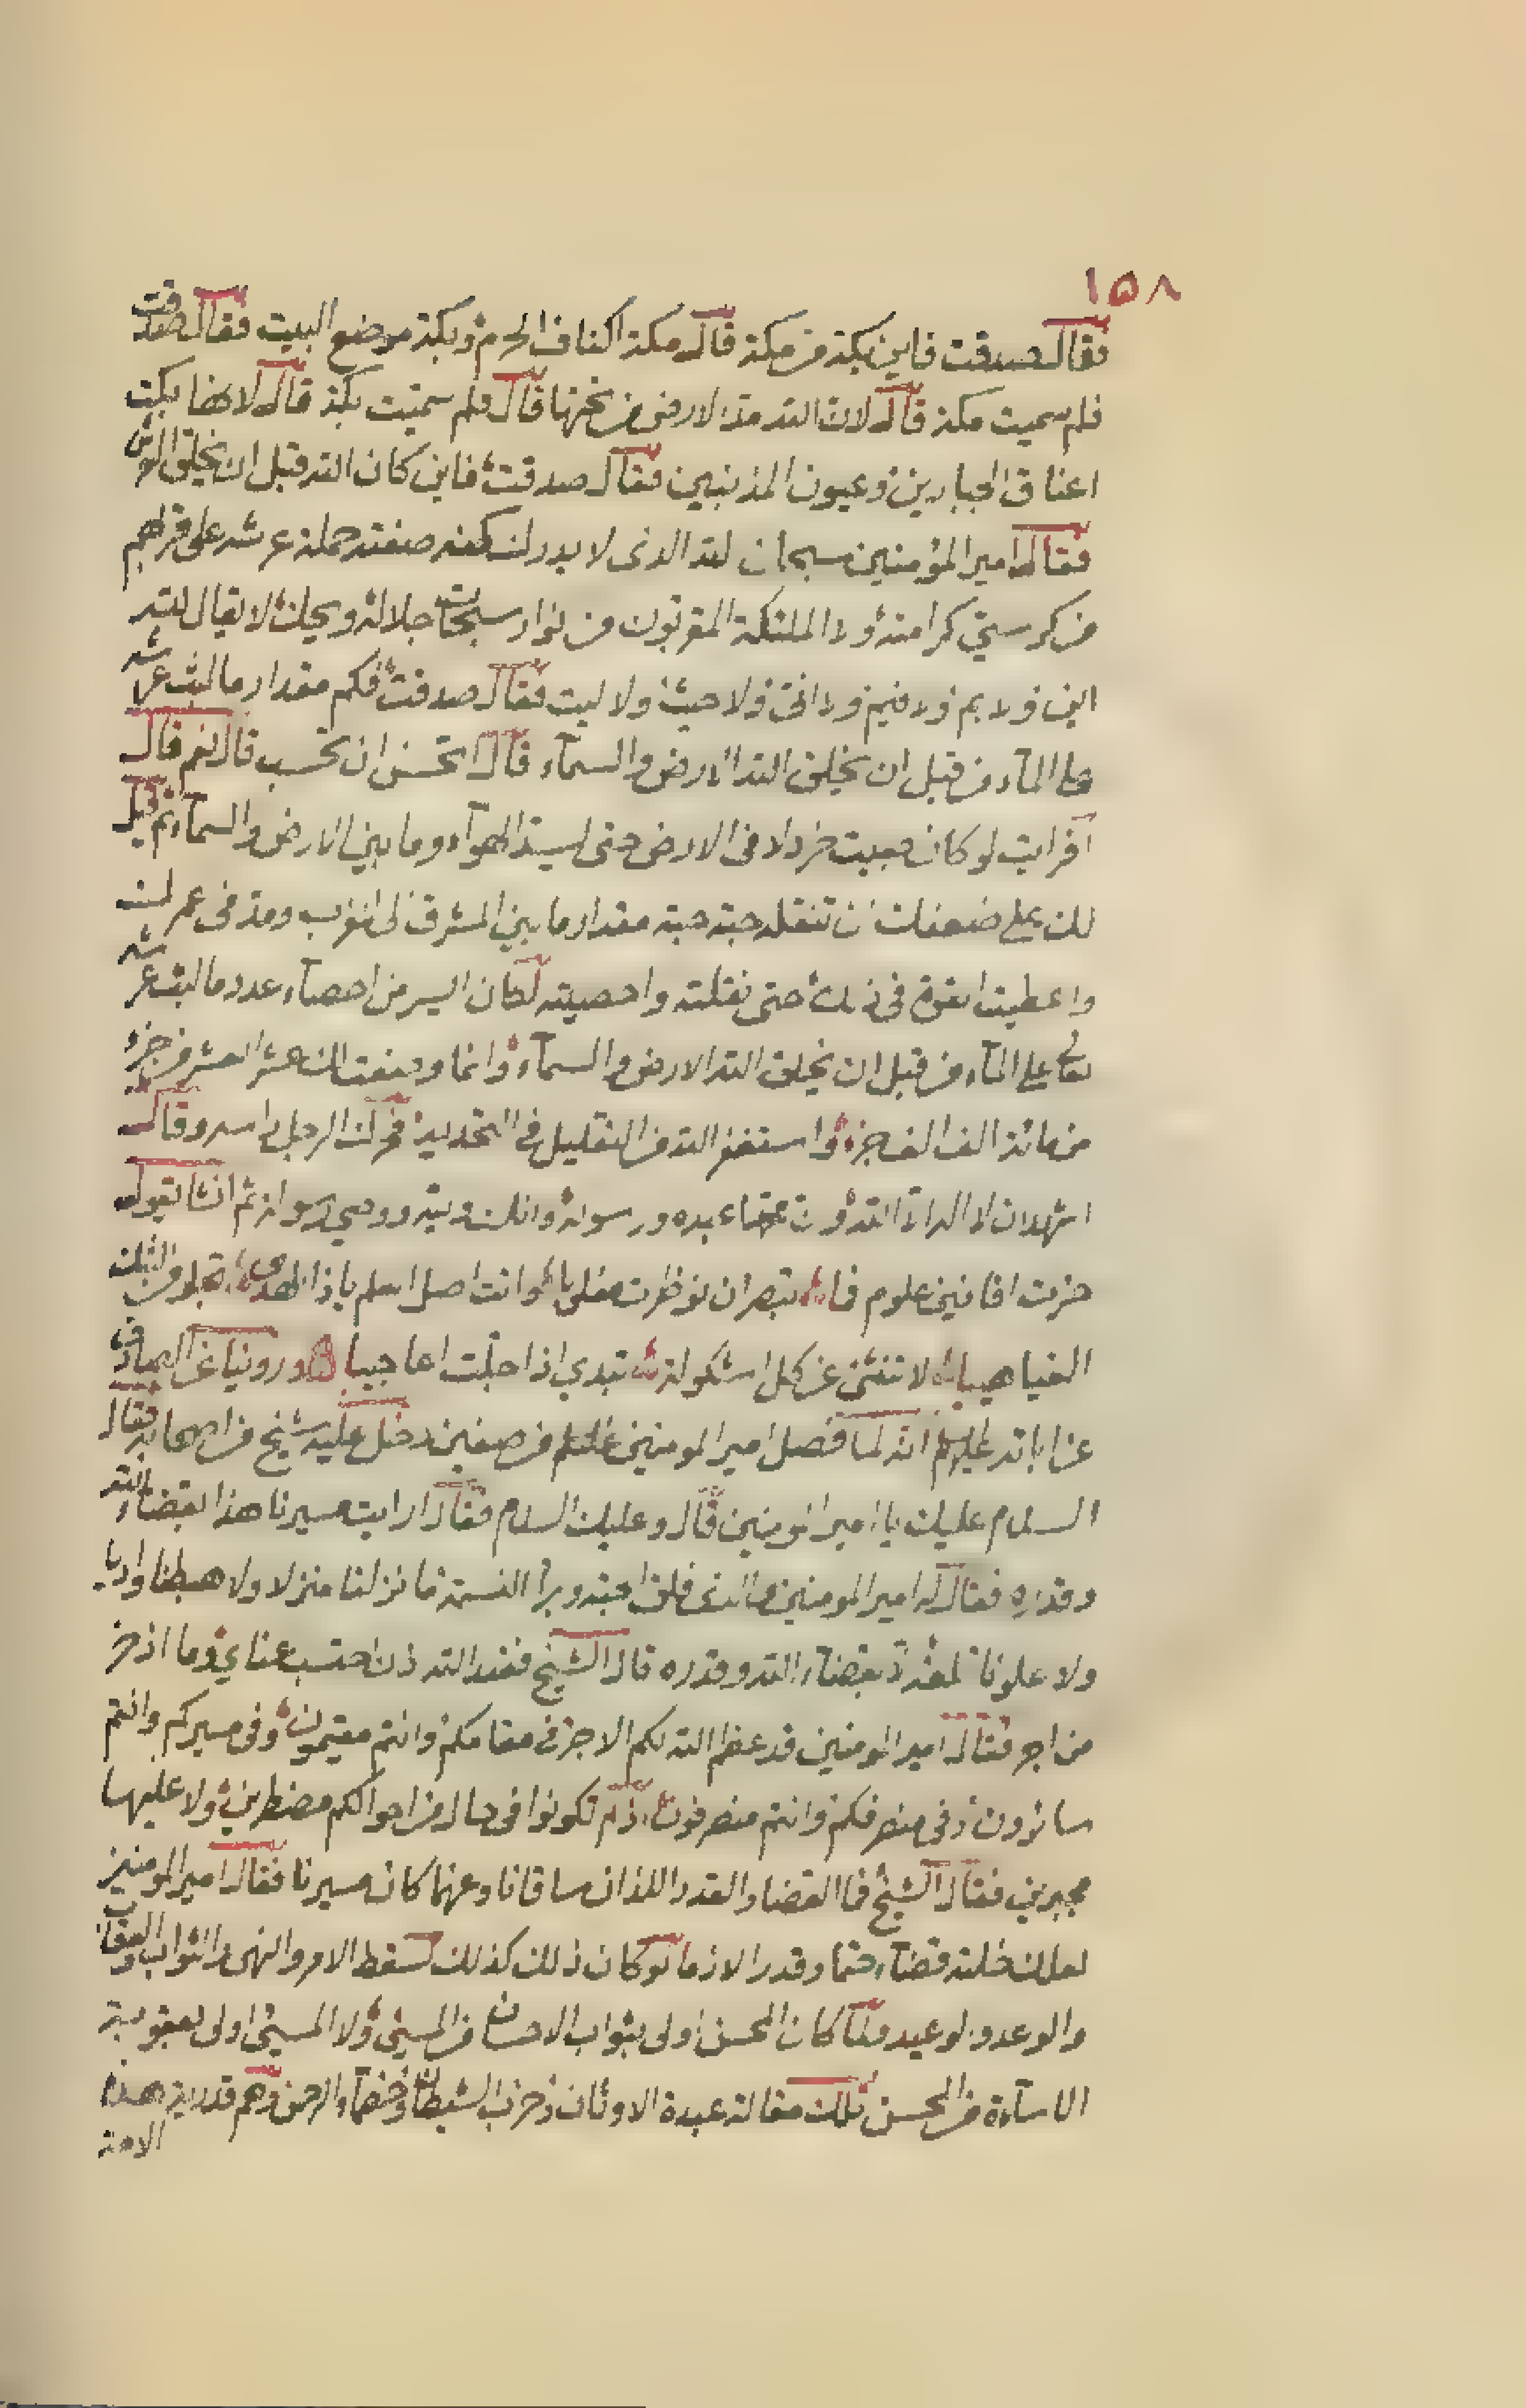 ١٥٨
فقال صدقت فاين بكة من مكة قال مكة اكناف الحرم وبكة موضع البيت فقال صدقت
فلم سميت مكة قال لان الله مد الارض من تحتها قال فلم سميت بكة قال لانها بكت
اعناق الجبارين وعيون المذنبين فقال صدقت فاين كان الله قبل ان يخلق العرش
فقال امير المؤمنين سبحان الله الذى لا يدرك كنه صفته حملة عرشه على قربهم
من كرسي كرامته ولا الملئكة المقربون من انوار سبحات جلاله ويحك لا يقال لله
اين ولا بم ولا فيم ولا انى ولا حيث ولا ليت فقال صدقت فكم مقدار ما لبث عرشه
على المآء من قبل ان يخلق الله الارض والسمآء قال اتحسن ان تحسب قال نعم قال
افرايت لو كان صبت خردلا فى الارض حتى لسد الهوآء وما بين الارض والسمآء ثم قيل
لك على ضعفك ان تنقله حبة حبة مقدار ما بين المشرق الى المغرب ومد فى عمرك
واعطيت القوة فى ذلك حتى نقلته واحصيته لكان ايسر من احصآء عدد ما لبث عرشه
تعالى على المآء من قبل ان يخلق الله الارض والسمآء وانما وصفت لك عشر العشر من جزء
من مائة الف الف جزء واستغفر الله من التقليل فى التحديد فحرك الرجل راسه وقال
اشهد ان لا اله الا الله وان محمدا عبده ورسوله وانك وليه ووصي رسوله ثم انشا يقول
حزت افانين علوم فما تبصر ان نوظرت مغلوبا وانت اصل العلم يا ذا الهدى تجلو من الشك
الغياهيبا لا تنثنى عن كل اشكولة تبدي اذا حلت اعاجيبا وروينا عن الصادق
عن ابائه عليهم السلم انه لما فصل امير المومنين عليه السلم من صفين دخل عليه شيخ من اصحابه فقال
السلام عليك يا امير المومنين قال وعليك السلام فقال ارايت مسيرنا هذا بقضاء الله
وقدره فقال له امير المومنين والذى فلق الحبة وبرا النسمة ما نزلنا منزلا ولا هبطنا واديا
ولا علونا تلعة الا بقضآء الله وقدره قال الشيخ فعند الله اذن احتسب عناي وما اذخر
من اجر فقال امير المومنين قد عظم الله لكم الاجر فى مقامكم وانتم مقيمون وفى مسيركم وانتم
سائرون وفى منصرفكم وانتم منصرفون اذ لم تكونوا فى حال من احوالكم مضطرين ولا عليها
مجبرين فقال الشيخ فما القضا والقدر اللذان ساقانا وعنهما كان مسيرنا فقال امير المومنين
لعلك خلته قضآء حتما وقدرا لازما لو كان ذلك كذلك لسقط الامر والنهى والثواب والعقاب
والوعد والوعيد ولما كان المحسن اولى بثواب الاحسان من المسئ ولا المسئ اولى بعقوبة
الاسآءة من المحسن تلك مقالة عبدة الاوثان وحزب الشيطان وخصمآء الرحمن وهم قدرية هذه
الامة